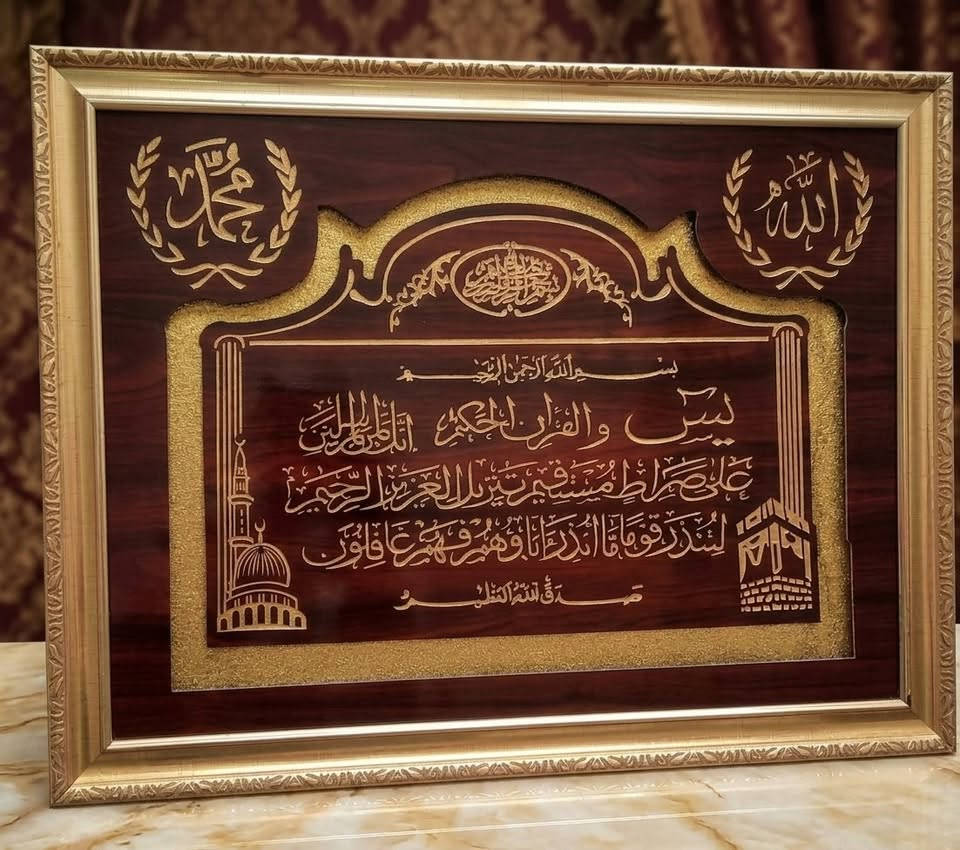 الله
محمد
بسم الله الرحمن الرحيم
بسم الله الرحمن الرحيم
يس والقرآن الحكيم إنك لمن المرسلين
على صراط مستقيم تنزيل العزيز الرحيم
لتنذر قوما ما أنذر آباؤهم فهم غافلون
صدق الله العظيم